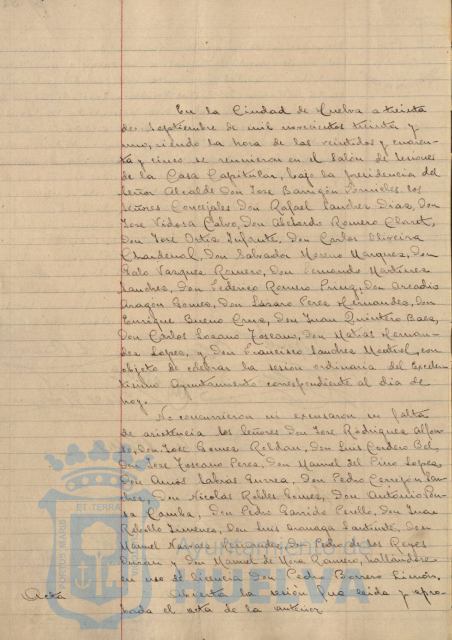 En la Ciudad de Huelva a treinta
de Septiembre de mil novecientos treinta y
uno, siendo la hora de las veintidos y cuaren-
ta y cinco se reunieron en el Salón de Sesiones
de la Casa Capitular, bajo la presidencia del
Señor Alcalde Don Jose Barrigón Fornieles los
Señores Concejales Don Rafael Sanchez Diaz, Don
Jose Vidosa Calvo, Don Abelardo Romero Claret,
Don Jose Ortiz Infante, Don Carlos Oliveira
Chardenal, Don Salvador Moreno Marquez, Don
Galo Vazquez Romero, Don Fernando Martinez
Sanchez, Don Federico Romero Perez, Don Arcadio
Aragon Gomez, Don Lázaro Perez Hernandez, Don
Enrique Bueno Cruz, Don Juan Quintero Baez,
Don Carlos Lozano Toscano, Don Matías Hernan-
dez Lopez, y Don Francisco Sanchez Montiel, con
objeto de celebrar la sesion ordinaria del Excelen-
tisimo Ayuntamiento correspondiente al dia de
hoy.
No concurrieron ni excusaron su falta
de asistencia los Señores Don Jose Rodriguez Alfon-
so, Don Jose Gomez Roldan, Don Luis Cordero Bel,
Don Jose Toscano Perez, Don Manuel del Pino Lopez,
Don Amós Sabras Gurrea, Don Pedro Cerrejon San-
chez, Don Nicolas Robles Gomez, Don Antonio Pon-
ce Don Pedro Garrido Perelló, Don Juan
Rebollo Jimenez, Don Luis Don
Manuel Narvaez Don Pedro de los Reyes
y Don Manuel de Mora Romero, hallándose
en uso de licencia Don Pedro Borrero Limón.
Acta Abierta la sesion fue leida y apro-
bada el acta de la anterior
PORTUS MARIS ET TERRAE
Ayuntamiento de
HUELVA